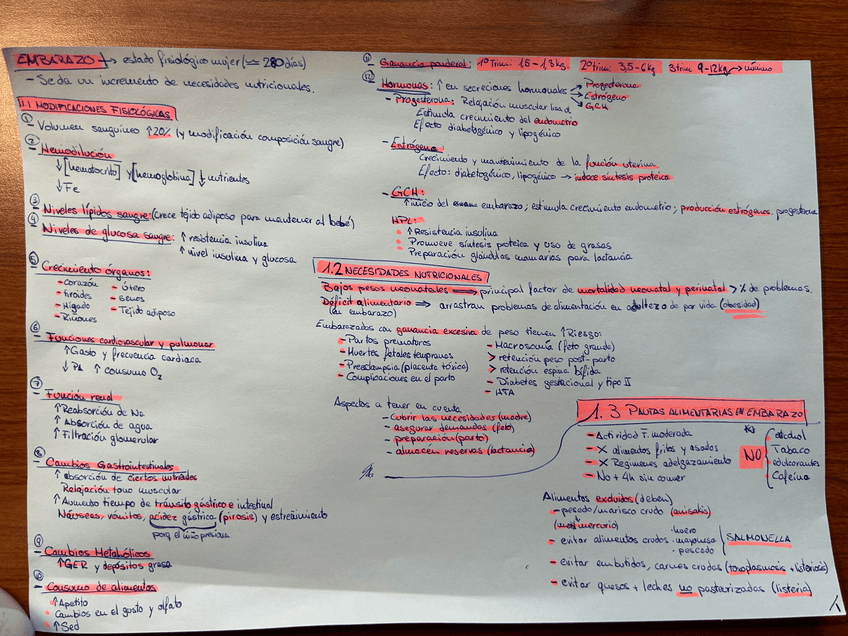 EMBARAZO → estado fisiológico mujer (≃ 280 días)
- Se da un incremento de necesidades nutricionales.
1.1 MODIFICACIONES FISIOLÓGICAS
① Volumen sanguíneo ↑20% (y modificación composición sangre)
② Hemodilución
↓[hematocrito] y [hemoglobina] ↓ nutrientes
↓Fe
③ Niveles lípidos sangre: (crece tejido adiposo para mantener al bebé)
④ Niveles de glucosa sangre: ↑ resistencia insulina
↑ nivel insulina y glucosa
⑤ Crecimiento órganos:
- Corazón - Útero
- tiroides - Senos
- Hígado - Tejido adiposo
- Riñones
⑥ Funciones cardiovascular y pulmonar
↑Gasto y frecuencia cardiaca
↓PA ↑ consumo O₂
⑦ Función renal
↑Reabsorción de Na
↑ Absorción de agua
↑ Filtración glomerular
⑧ Cambios Gastrointestinales
↑ absorción de ciertos nutrientes
Relajación tono muscular
↑Aumento tiempo de tránsito gástrico e intestinal
Náuseas, vómitos, acidez gástrica (pirosis) y estreñimiento
porq el niño presiona
⑨ Cambios Metabólicos
↑GER y depósitos grasa
⑩ Consumo de alimentos
↑Apetito
Cambios en el gusto y olfato
↑Sed
⑪ Ganancia ponderal: 1º Trim: 1,5 - 1,8 kg. 2º trim: 3,5-6 kg 3 trim 9-12kg → mínimo
⑫ Hormonas: ↑ en secreciones hormonales → Progesterona
→ Estrógeno
→ GCH
- Progesterona: Relajación muscular lisa
Estimula crecimiento del endometrio
Efecto diabetogénico y lipogénico
- Estrógeno:
Crecimiento y mantenimiento de la función uterina
Efecto: diabetogénico, lipogénico → induce síntesis proteica
- GCH:
↑inicio del embarazo; estimula crecimiento endometrio; producción estrógenos, progesterona
HPL:
↑Resistencia insulina
Promueve síntesis proteica y uso de grasas
Preparación glándulas mamarias para lactancia
1.2 NECESIDADES NUTRICIONALES
Bajos pesos neonatales ⟹ principal factor de mortalidad neonatal y perinatal > % de problemas.
Déficit alimentario ⟹ arrastran problemas de alimentación en adultez o de por vida (obesidad)
(en embarazo)
Embarazadas con ganancia excesiva de peso tienen ↑Riesgo:
- Partos prematuros - Macrosomía (feto grande)
- Muertes fetales tempranas > retención peso post-parto
- Preeclampsia (placenta tóxica) > retención espina bífida
- Complicaciones en el parto - Diabetes gestacional y tipo II
- HTA
Aspectos a tener en cuenta
- cubrir las necesidades (madre)
- asegurar demandas (feto)
- preparación (parto)
- almacen reservas (lactancia)
1.3 PAUTAS ALIMENTARIAS EN EMBARAZO
- Actividad F. moderada
- X alimentos fritos y asados
- X Regímenes adelgazamiento
- No + 4h sin comer
NO
Alcohol
Tabaco
edulcorantes
Cafeína
Alimentos excluidos (deben)
- pescado/marisco crudo (anisakis)
(metilmercurio)
- evitar alimentos crudos · huevo
· mayonesa
· pescado
SALMONELLA
- evitar embutidos, carnes crudas (toxoplasmosis + listeriosis)
- evitar quesos + leches no pasteurizadas (listeria)